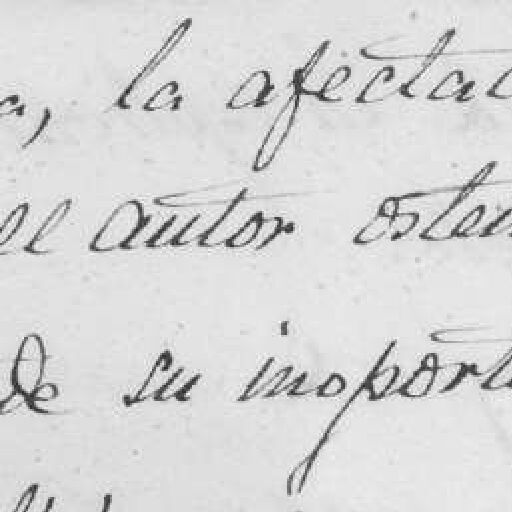 a, la afectac
el autor osten
de su inoport